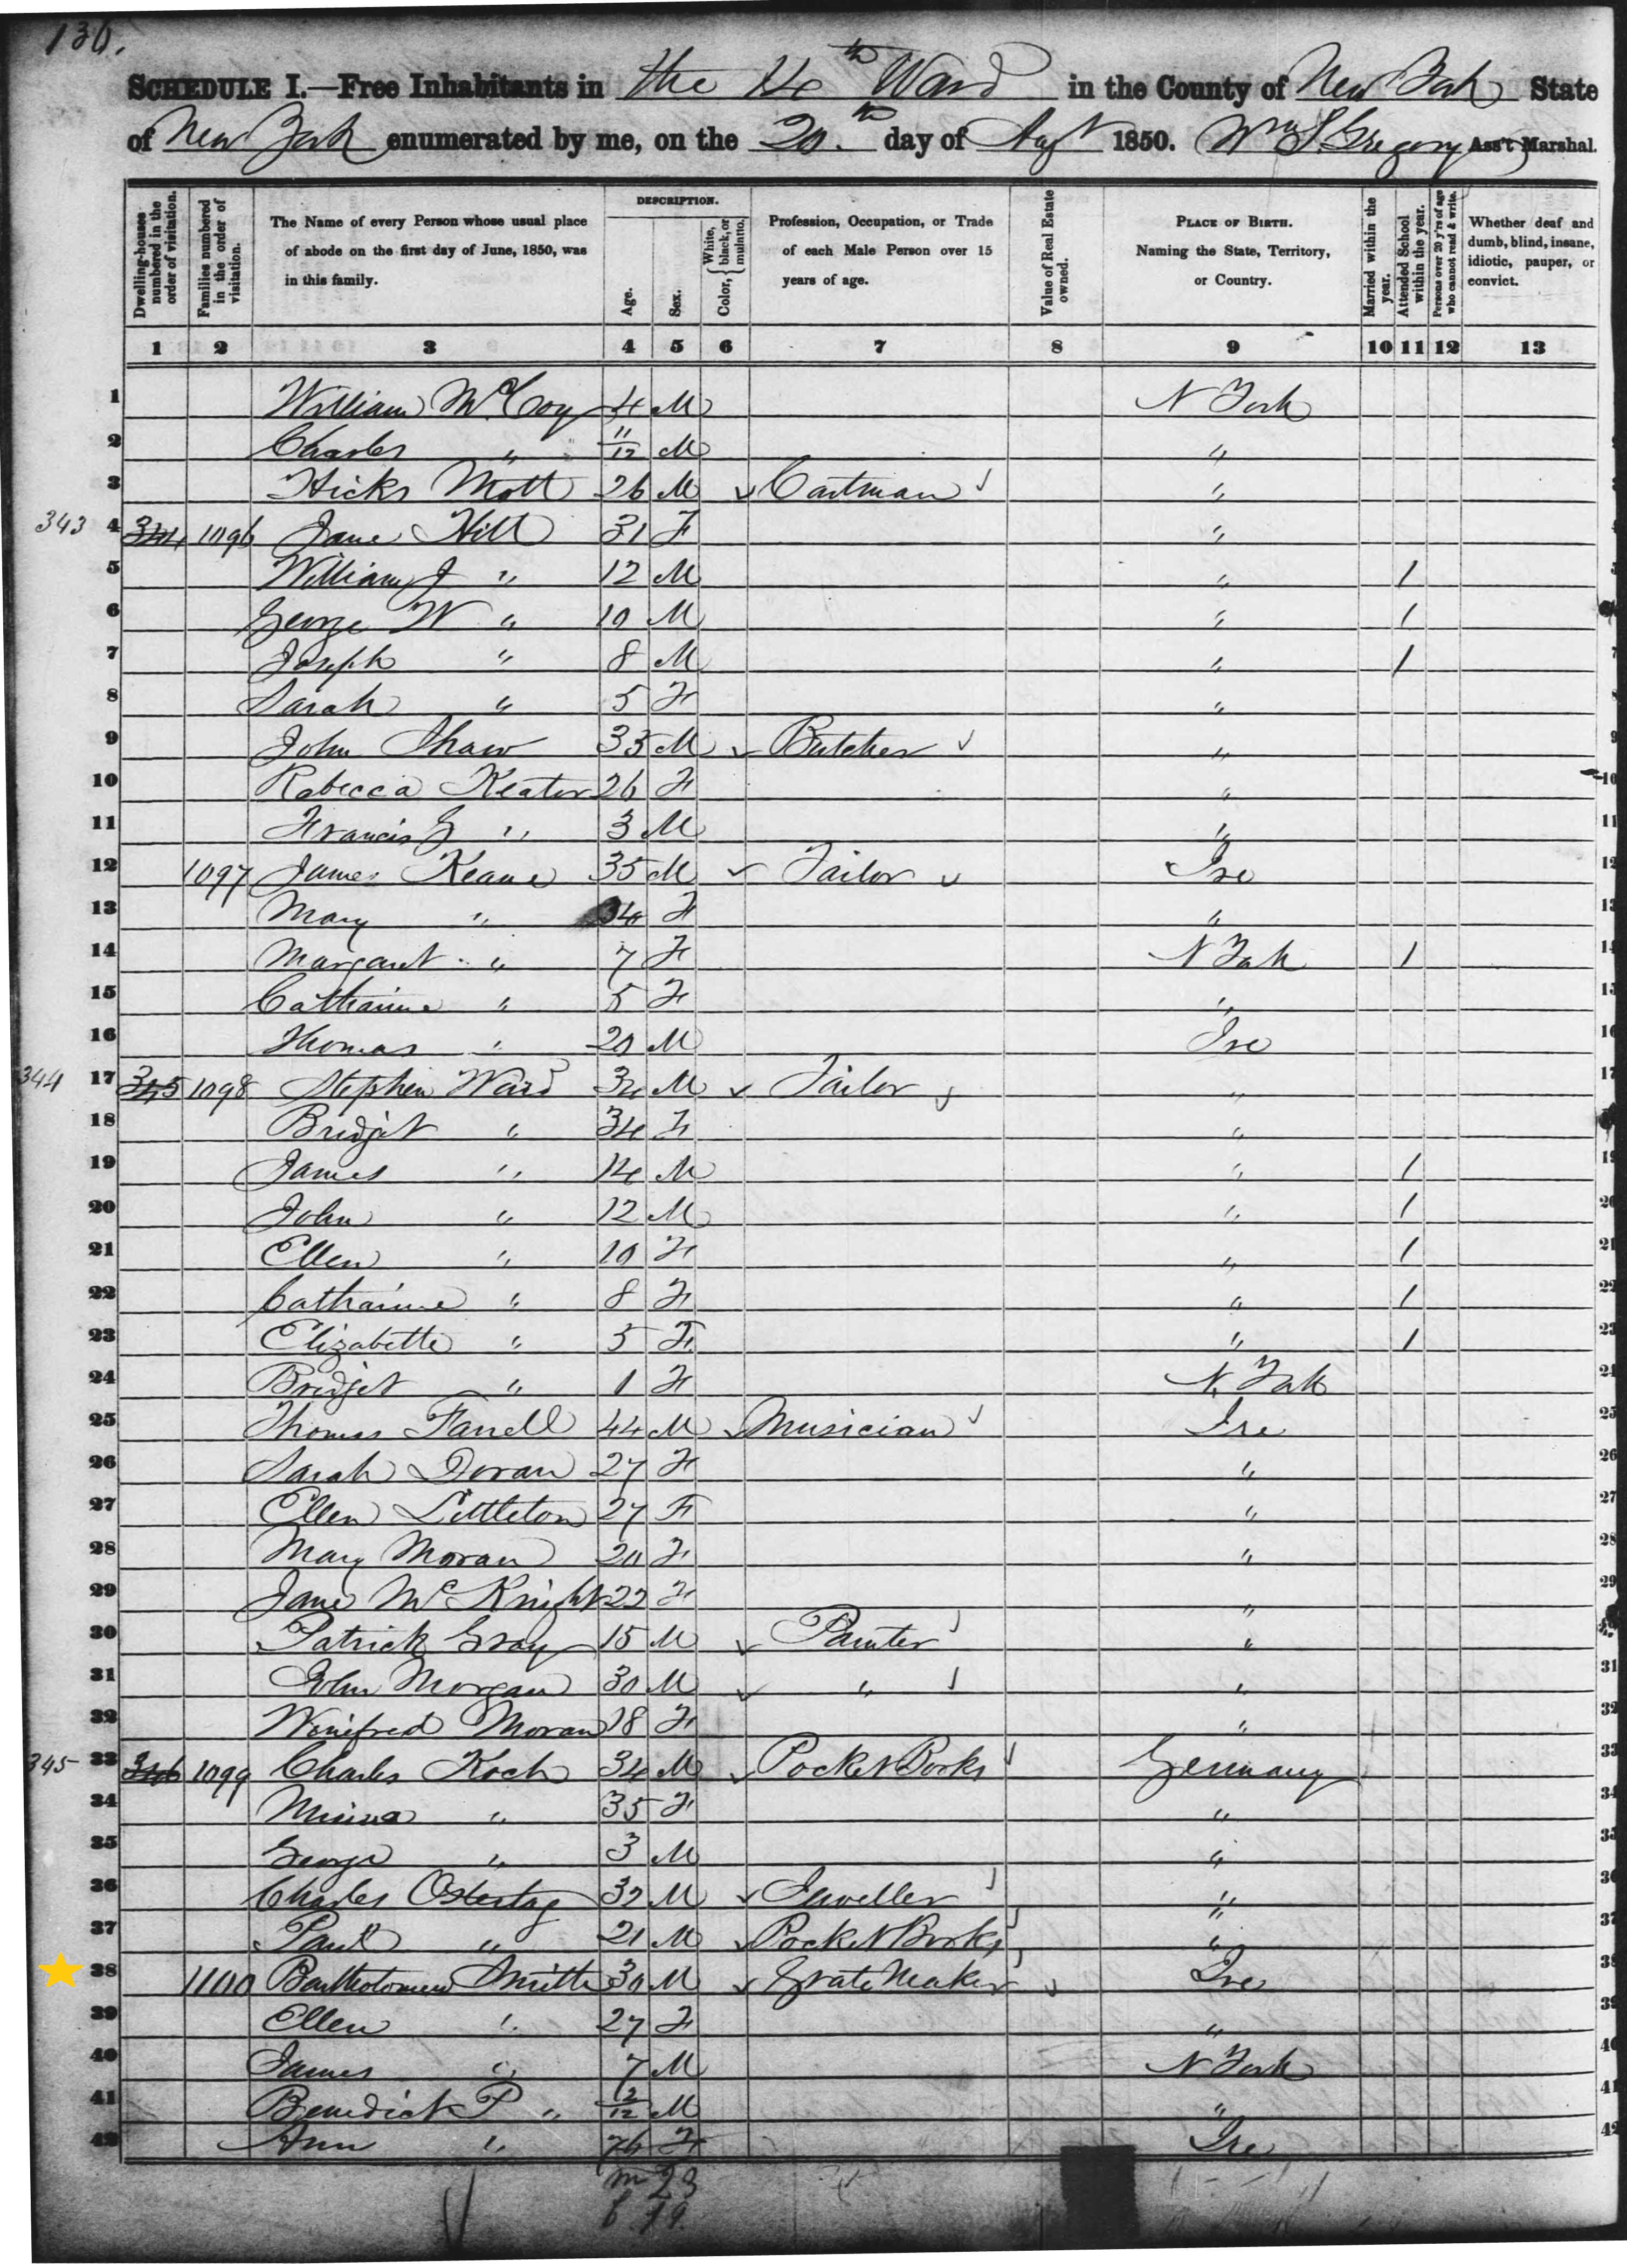 130.
SCHEDULE I.—Free Inhabitants in the 14th Ward in the County of New York State
of New York enumerated by me, on the 20th day of Augt 1850. Wm S. Gregory Ass't Marshal.
DESCRIPTION.
Dwelling-houses numbered in the order of visitation.
Families numbered in the order of visitation.
The Name of every Person whose usual place of abode on the first day of June, 1850, was in this family.
Age.
Sex.
Color, { White, black, or mulatto.
Profession, Occupation, or Trade of each Male Person over 15 years of age.
Value of Real Estate owned.
PLACE OF BIRTH. Naming the State, Territory, or Country.
Married within the year.
Attended School within the year.
Persons over 20 y'rs of age who cannot read & write.
Whether deaf and dumb, blind, insane, idiotic, pauper, or convict.
1 2 3 4 5 6 7 8 9 10 11 12 13
1 William McCoy 4 M N York
2 Charles " 11/12 M "
3 Hicks Mott 26 M Cartman "
343 4 344 1096 Jane Hill 31 F "
5 William J " 12 M " /
6 George W " 10 M " /
7 Joseph " 8 M " /
8 Sarah " 5 F "
9 John Shaw 35 M Butcher " 9
10 Rebecca Keator 26 F " 10
11 Francis G " 3 M " 11
12 1097 James Keane 35 M Tailor Ire 12
13 Mary " 34 F " 13
14 Margaret " 7 F N York / 14
15 Catharine " 5 F " 15
16 Thomas " 20 M Ire 16
344 17 345 1098 Stephen Ward 34 M Tailor " 17
18 Bridget " 34 F "
19 James " 14 M " / 19
20 John " 12 M " / 20
21 Ellen " 10 F " / 21
22 Catharine " 8 F " / 22
23 Elizabeth " 5 F " / 23
24 Bridget " 1 F N. York 24
25 Thomas Farrell 44 M Musician Ire 25
26 Sarah Doran 27 F " 26
27 Ellen Littleton 27 F " 27
28 Mary Moran 20 F " 28
29 Jane McKnight 22 F " 29
30 Patrick Gray 15 M Painter "
31 John Morgan 30 M " " 31
32 Winifred Moran 18 F " 32
345 33 346 1099 Charles Koch 34 M Pocket Books Germany 33
34 Minna " 35 F " 34
35 George " 3 M " 35
36 Charles Ostertag 32 M Jeweller " 36
37 Paul " 21 M Pocket Books " 37
38 1100 Bartholomew Smith 30 M Grate Maker Ire 38
39 Ellen " 27 F " 39
40 James " 7 M N York 40
41 Benedick P " 2/12 M " 41
42 Ann " 76 F Ire 42
m 23
f 19.